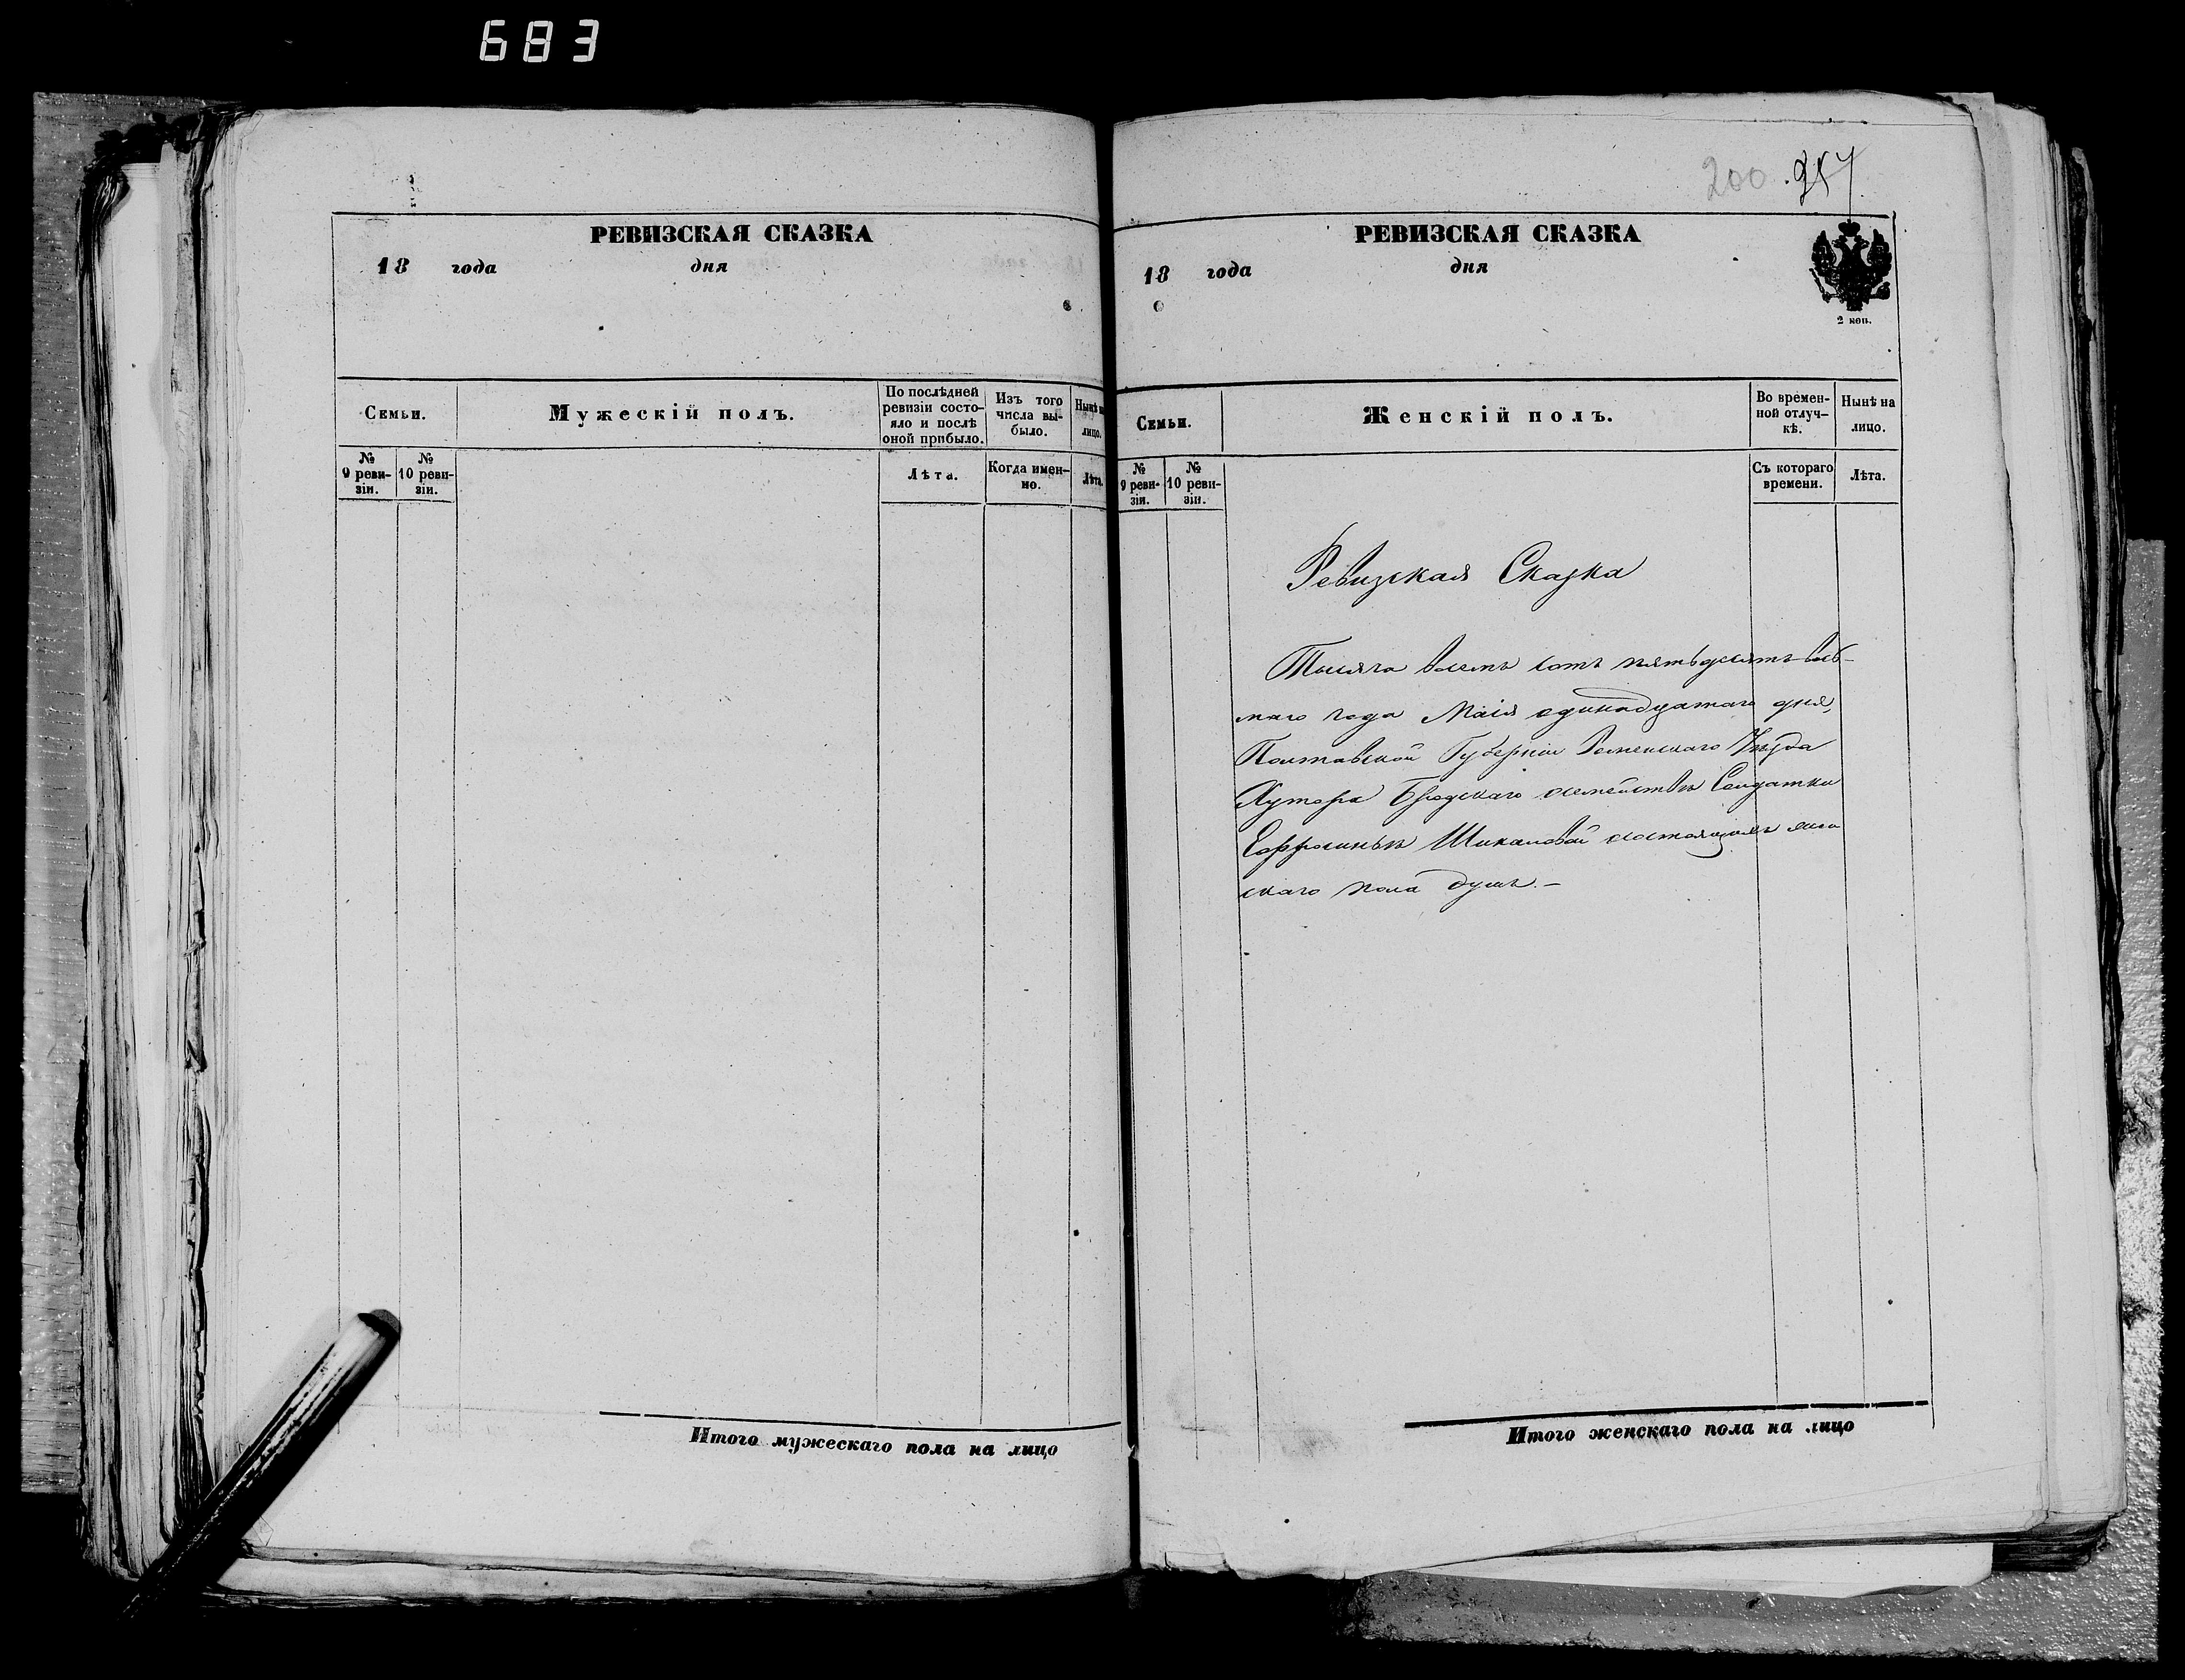 683
РЕВИЗСКАЯ СКАЗКА
18 года дня
Семьи.
Мужескій полъ.
По послѣдней
ревизіи состо-
яло и послѣ
оной прибыло.
Изъ того
числа вы-
было.
Нынѣ на
лицо.
№
9 реви-
зіи.
№
10 реви-
зіи.
Лѣта.
Когда имен-
но.
Лѣта.
Итого мужескаго пола на лицо
200
РЕВИЗСКАЯ СКАЗКА
18 года дня
2 коп.
Семьи.
Женскій полъ.
Во времен-
ной отлуч-
кѣ.
Нынѣ на
лицо.
№
9 реви-
зіи.
№
10 реви-
зіи.
Съ котораго
времени.
Лѣта.
Ревизская Сказка
Тысяча восемь сотъ пятьдесятъ вось-
маго года Маія одинадцатаго дня,
Полтавской Губерніи Роменскаго Уѣзда
Хутора семействѣ Солдатки
Ефросиньи состоящемъ
скаго пола душъ.-
Итого женскаго пола на лицо